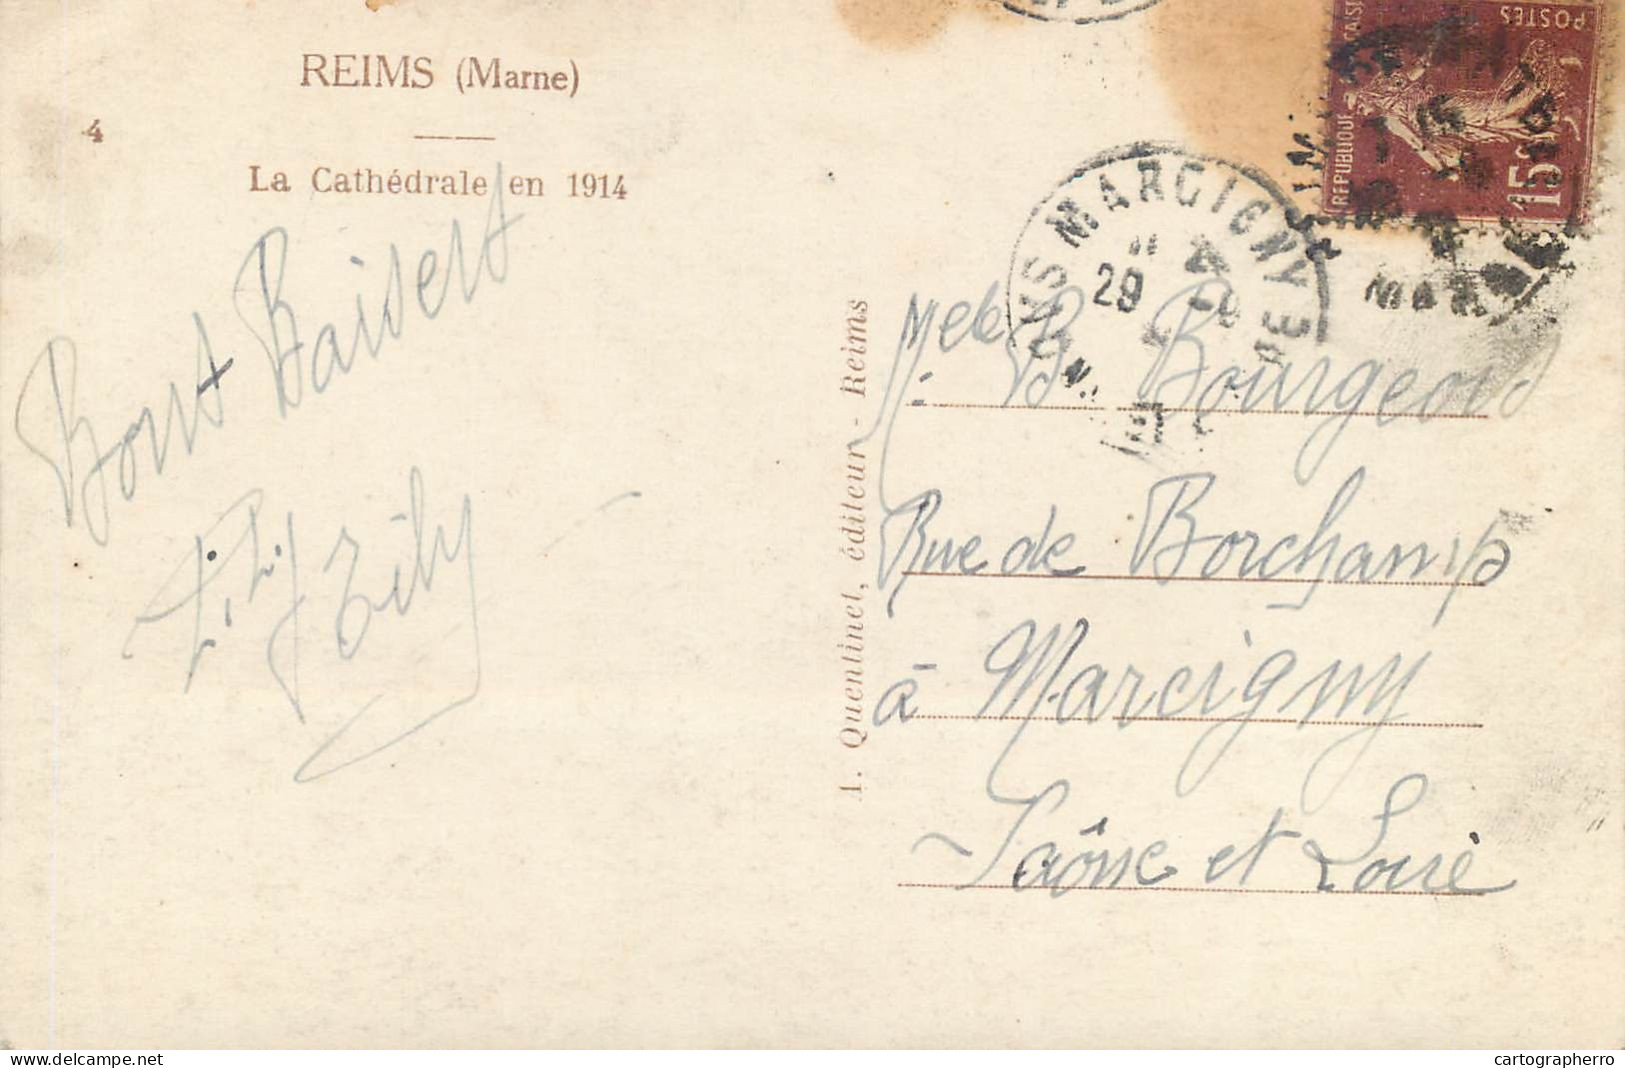 REIMS (Marne)
4
La Cathédrale en 1914
Bons Baisers
A. Quentinet, éditeur - Reims
POSTES
REPUBLIQUE FRANCAISE
15c
MARCIGNY
29
Melle B. Bourgeois
Rue de Borchamp
à Marcigny
Saône et Loire
delcampe.net
cartographerro